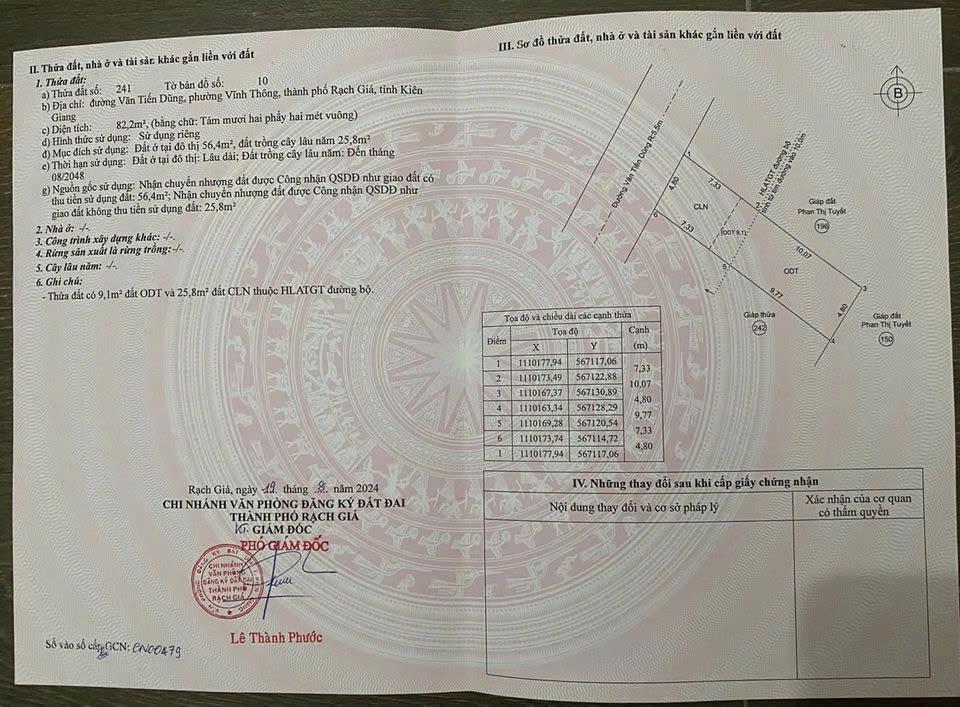 II. Thửa đất, nhà ở và tài sản khác gắn liền với đất
1. Thửa đất:
a) Thửa đất số: 241 Tờ bản đồ số: 10
b) Địa chỉ: đường Văn Tiến Dũng, phường Vĩnh Thông, thành phố Rạch Giá, tỉnh Kiên
Giang
c) Diện tích: 82,2m², (bằng chữ: Tám mươi hai phẩy hai mét vuông)
d) Hình thức sử dụng: Sử dụng riêng
đ) Mục đích sử dụng: Đất ở tại đô thị 56,4m², đất trồng cây lâu năm 25,8m²
e) Thời hạn sử dụng: Đất ở tại đô thị: Lâu dài; Đất trồng cây lâu năm: Đến tháng
08/2048
g) Nguồn gốc sử dụng: Nhận chuyển nhượng đất được Công nhận QSDĐ như giao đất có
thu tiền sử dụng đất: 56,4m²; Nhận chuyển nhượng đất được Công nhận QSDĐ như
giao đất không thu tiền sử dụng đất: 25,8m²
2. Nhà ở: -/-.
3. Công trình xây dựng khác: -/-.
4. Rừng sản xuất là rừng trồng:-/-.
5. Cây lâu năm: -/-.
6. Ghi chú:
- Thửa đất có 9,1m² đất ODT và 25,8m² đất CLN thuộc HLATGT đường bộ.
Rạch Giá, ngày 19 tháng 8 năm 2024
CHI NHÁNH VĂN PHÒNG ĐĂNG KÝ ĐẤT ĐAI
THÀNH PHỐ RẠCH GIÁ
KT. GIÁM ĐỐC
PHÓ GIÁM ĐỐC
CHI NHÁNH
VĂN PHÒNG
ĐĂNG KÝ ĐẤT ĐAI
THÀNH PHỐ
RẠCH GIÁ
Lê Thành Phước
Số vào sổ cấp GCN: CN00479
III. Sơ đồ thửa đất, nhà ở và tài sản khác gắn liền với đất
B
Đường Văn Tiến Dũng R:5,5m
HLATGT đường bộ
tính từ tim đường vào 10,0m
1
4,80
7,33
CLN
6
7,33
2
(ODT 9,1)
5
10,07
ODT
9,77
3
4,80
4
Giáp đất
Phan Thị Tuyết
196
Giáp thửa
242
Giáp đất
Phan Thị Tuyết
150
Tọa độ và chiều dài các cạnh thửa
Điểm Tọa độ Cạnh
X Y (m)
1 1110177,94 567117,06
7,33
2 1110173,49 567122,88
10,07
3 1110167,37 567130,89
4,80
4 1110163,34 567128,29
9,77
5 1110169,28 567120,54
7,33
6 1110173,74 567114,72
4,80
1 1110177,94 567117,06
IV. Những thay đổi sau khi cấp giấy chứng nhận
Nội dung thay đổi và cơ sở pháp lý
Xác nhận của cơ quan
có thẩm quyền